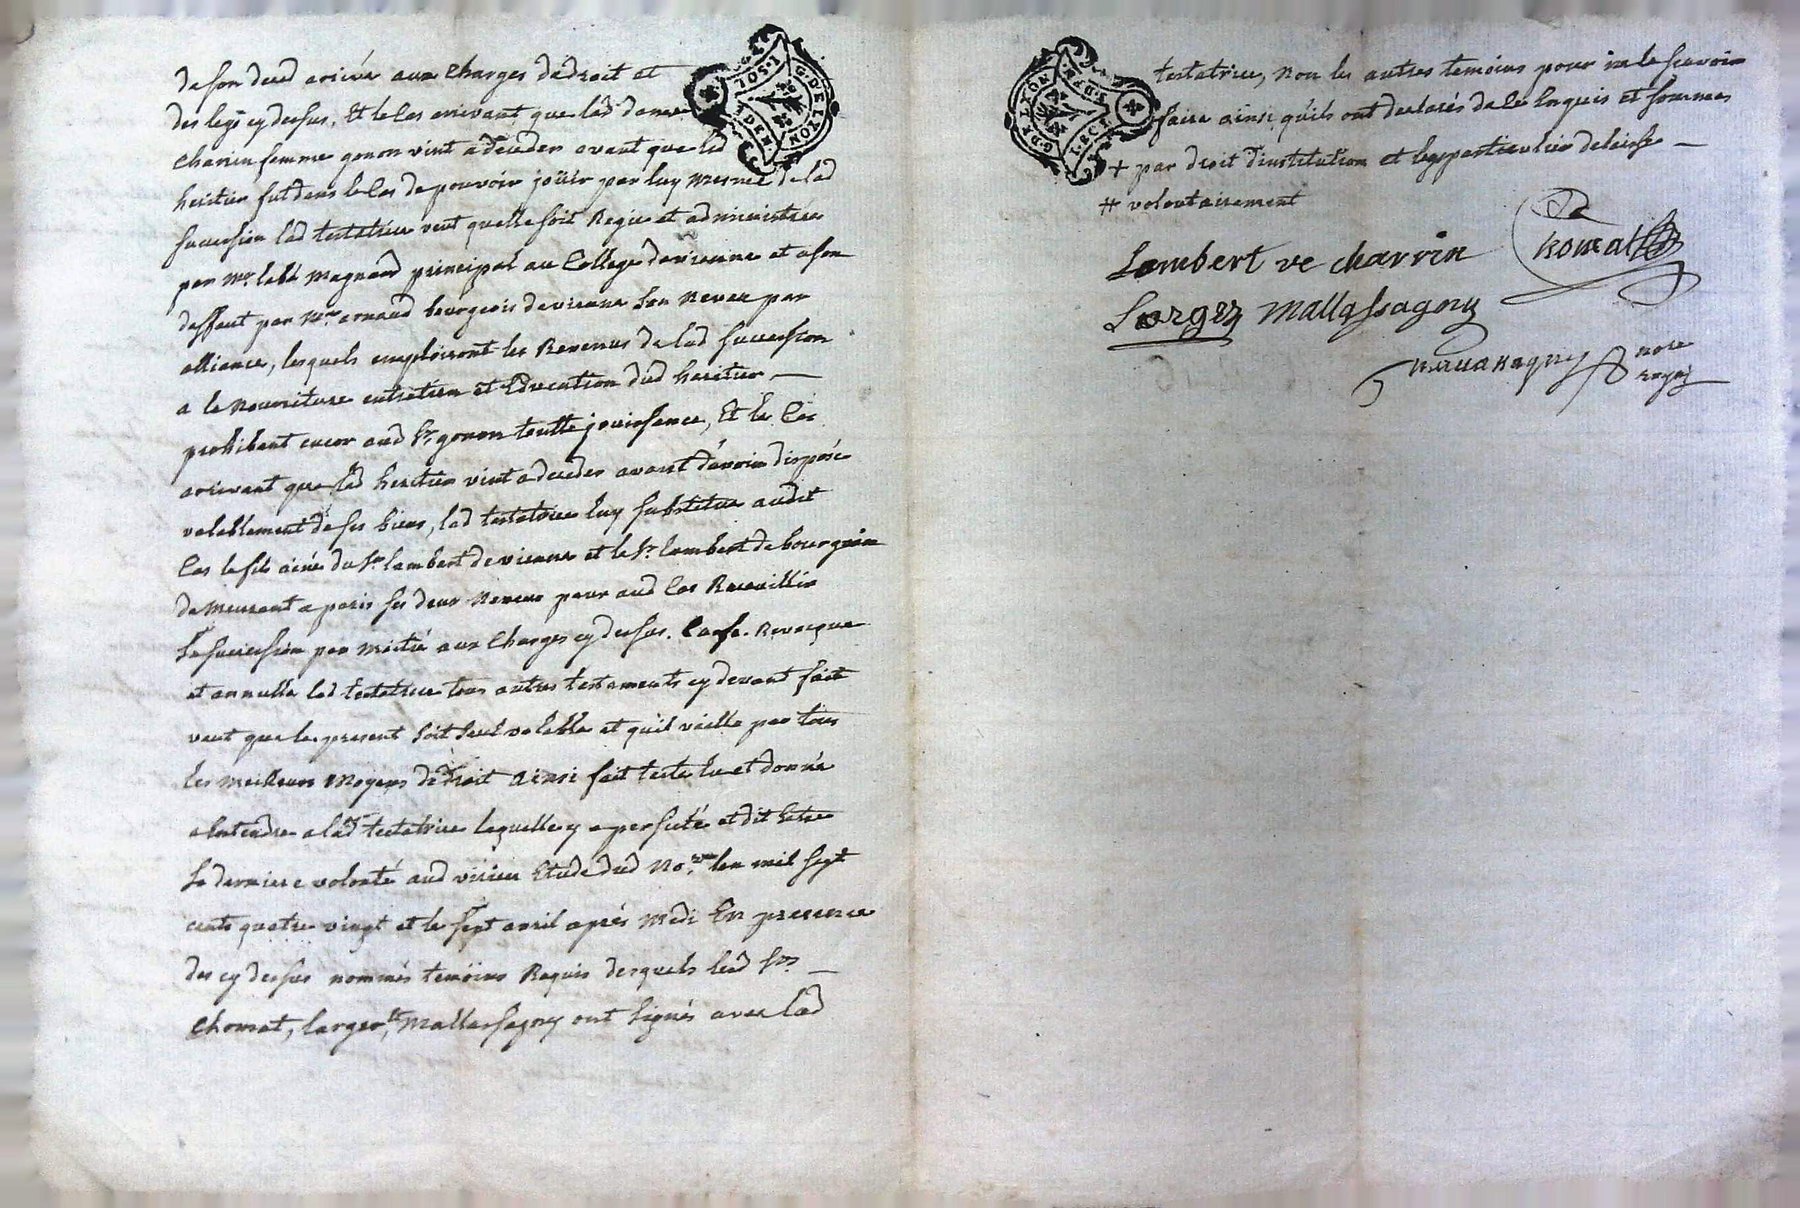 de son deced arivée aux charges de droit et
des legs cy dessus, Et le cas arrivant que lad dame
Charvin femme gonon vint a deceder avant que led
heritier fut dans le cas de pouvoir joüir par luy mesme de lad
succession lad testatrice veut quelle soit Regie et administrée
par Mr. labé Magnard principal au College de vienne et a son
deffaut par Mr. arnaud bourgeois de vienne son neveu par
alliance, lesquels emploiront les Revenus de lad succession
a la Nourriture entretien et Education dud heritier
prohibant encor aud Sr. gonon toutte jouissance, Et le Cas
arrivant que led heritier vint a deceder avant d'avoir disposé
valablement de ses biens, lad testatrice luy substitue audit
Cas le fils ainé du Sr. lambert de vienne et le Sr. lambert de bourgoin
demeurant a paris ses deux Neveux pour aud Cas Recueillir
sa succession par moitié aux charges cy dessus. Casse. Revoque
et annulle lad testatrice tous autres testaments cy devant fait
veut que le present soit seul valable et quil vaille par tous
les meilleurs moyens de droit ainsi fait testé lu et donné
a Entendre a lad testatrice laquelle y a persisté et dit Estre
sa derniere volonté aud Etude dud No.re lan mil sept
cents quatre vingt et le sept avril aprés Midi En presence
des cy dessus nommés temoins Requis desquels lesd Srs.
Chomat, larger, et Mallassagny ont signés avec lad
G. DE LYON
1. SOL
testatrice, non les autres temoins pour ne le scavoir
faire ainsi quils ont declarés de ce Enquis et sommés
+ par droit d'institution et legs particulier delaisse
# volontairement
Lambert ve charvin
homat
Larger Mallassagny
nore
royal
G. DE LYON